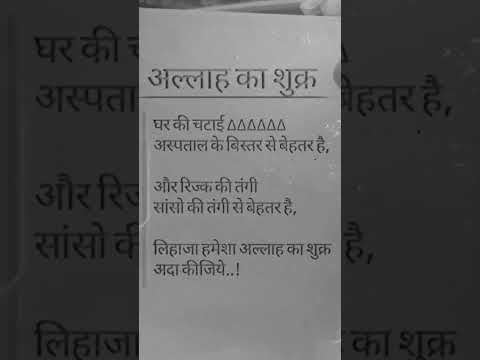 अल्लाह का शुक्र
घर की चटाई ∆∆∆∆∆∆
अस्पताल के बिस्तर से बेहतर है,
और रिज्क की तंगी
सांसो की तंगी से बेहतर है,
लिहाजा हमेशा अल्लाह का शुक्र
अदा कीजिये..!